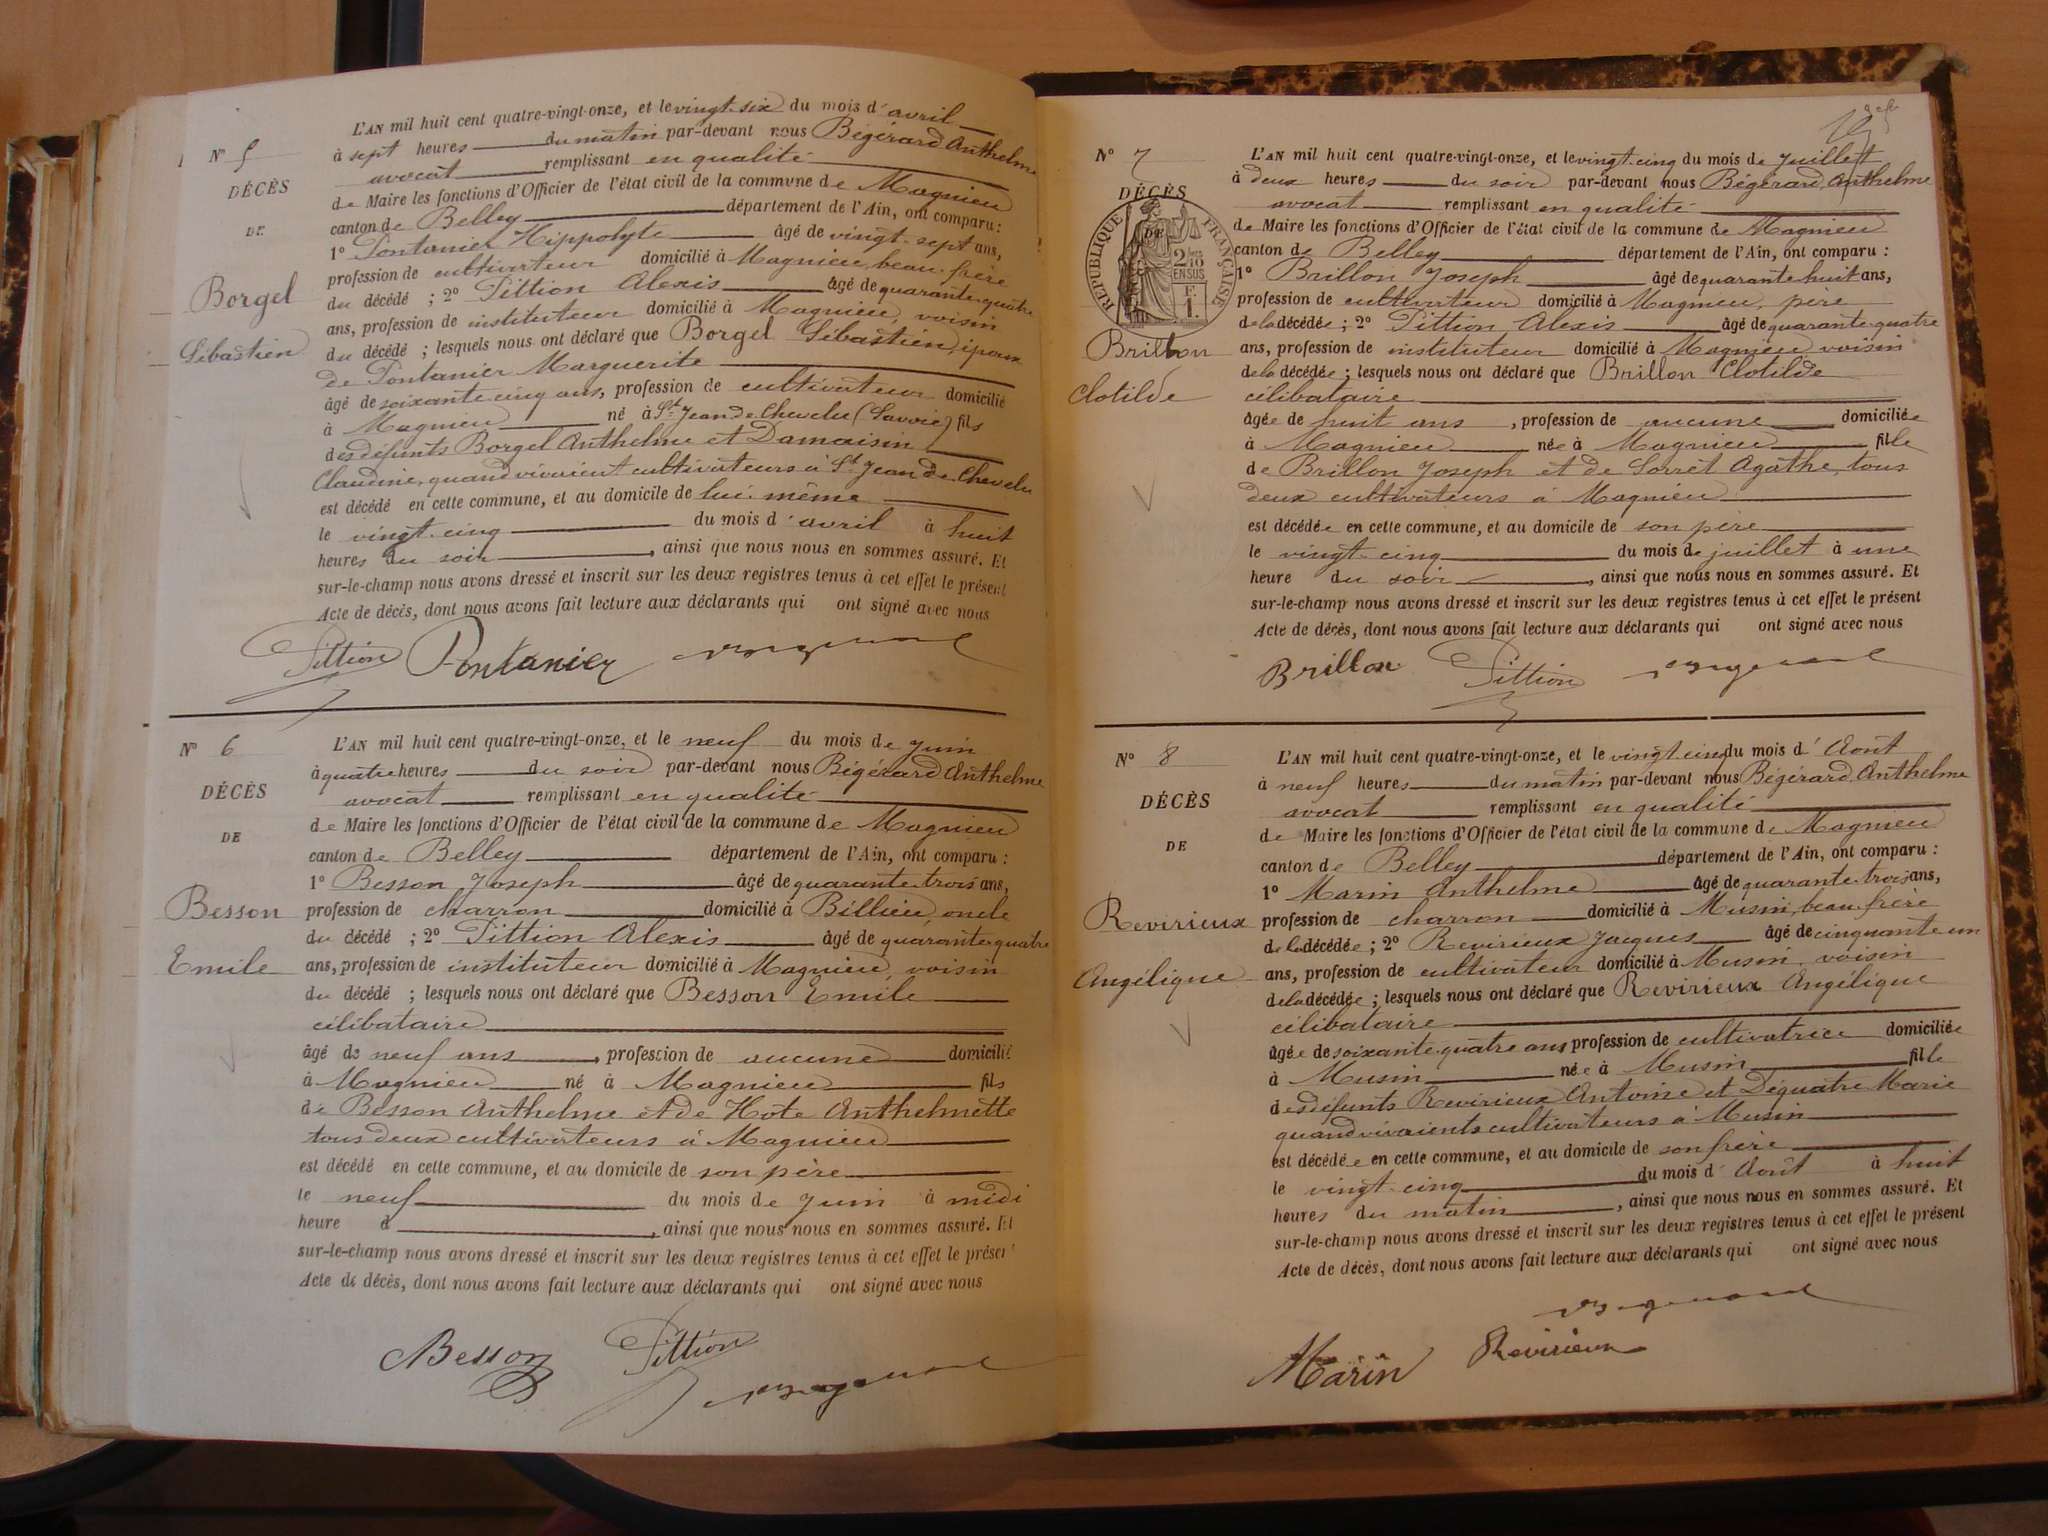 N° 5
DÉCÈS
DE
Borgel
Sébastien
L'AN mil huit cent quatre-vingt-onze, et le vingt-six du mois d'avril
à sept heures du matin par-devant nous Bégérard Anthelme
avocat remplissant en qualité
de Maire les fonctions d'Officier de l'état civil de la commune de Magnieu
canton de Belley département de l'Ain, ont comparu :
1° Pontanier Hippolyte âgé de vingt-sept ans,
profession de cultivateur domicilié à Magnieu, beau-frère
du décédé ; 2° Pittion Alexis âgé de quarante-quatre
ans, profession de instituteur domicilié à Magnieu, voisin
du décédé ; lesquels nous ont déclaré que Borgel Sébastien, époux
de Pontanier Marguerite
âgé de soixante cinq ans, profession de cultivateur domicilié
à Magnieu né à St Jean de Chevelu (Savoie) fils
des défunts Borgel Anthelme et Damaisin
Claudine, quand vivaient cultivateurs à St Jean de Chevelu
est décédé en cette commune, et au domicile de lui-même
le vingt-cinq du mois d'avril à huit
heures du soir, ainsi que nous nous en sommes assuré. Et
sur-le-champ nous avons dressé et inscrit sur les deux registres tenus à cet effet le présent
Acte de décès, dont nous avons fait lecture aux déclarants qui ont signé avec nous
Pittion Pontanier
N° 6
DÉCÈS
DE
Besson
Emile
L'AN mil huit cent quatre-vingt-onze, et le neuf du mois de juin
à quatre heures du soir par-devant nous Bégérard Anthelme
avocat remplissant en qualité
de Maire les fonctions d'Officier de l'état civil de la commune de Magnieu
canton de Belley département de l'Ain, ont comparu :
1° Besson Joseph âgé de quarante-trois ans,
profession de charron domicilié à Billieu, oncle
du décédé ; 2° Pittion Alexis âgé de quarante-quatre
ans, profession de instituteur domicilié à Magnieu, voisin
du décédé ; lesquels nous ont déclaré que Besson Emile
célibataire
âgé de neuf ans, profession de aucune domicilié
à Magnieu né à Magnieu fils
de Besson Anthelme et de Hote Anthelmette
tous deux cultivateurs à Magnieu
est décédé en cette commune, et au domicile de son père
le neuf du mois de juin à midi
heure d, ainsi que nous nous en sommes assuré. Et
sur-le-champ nous avons dressé et inscrit sur les deux registres tenus à cet effet le présent
Acte de décès, dont nous avons fait lecture aux déclarants qui ont signé avec nous
Besson Pittion
N° 7
DÉCÈS
DE
RÉPUBLIQUE FRANÇAISE
2/10
EN SUS
F.
1.
Brillon
Clotilde
L'AN mil huit cent quatre-vingt-onze, et le vingt-cinq du mois de juillet
à deux heures du soir par-devant nous Bégérard, Anthelme
avocat remplissant en qualité
de Maire les fonctions d'Officier de l'état civil de la commune de Magnieu
canton de Belley département de l'Ain, ont comparu :
1° Brillon Joseph âgé de quarante huit ans,
profession de cultivateur domicilié à Magnieu, père
de la décédée ; 2° Pittion Alexis âgé de quarante-quatre
ans, profession de instituteur domicilié à Magnieu voisin
de la décédée ; lesquels nous ont déclaré que Brillon Clotilde
célibataire
âgée de huit ans, profession de aucune domiciliée
à Magnieu née à Magnieu fille
de Brillon Joseph et de Serrèt Agathe, tous
deux cultivateurs à Magnieu
est décédée en cette commune, et au domicile de son père
le vingt-cinq du mois de juillet à une
heure du soir, ainsi que nous nous en sommes assuré. Et
sur-le-champ nous avons dressé et inscrit sur les deux registres tenus à cet effet le présent
Acte de décès, dont nous avons fait lecture aux déclarants qui ont signé avec nous
Brillon Pittion
N° 8
DÉCÈS
DE
Revirieux
Angélique
L'AN mil huit cent quatre-vingt-onze, et le vingt cinq du mois d'Août
à neuf heures du matin par-devant nous Bégérard Anthelme
avocat remplissant en qualité
de Maire les fonctions d'Officier de l'état civil de la commune de Magnieu
canton de Belley département de l'Ain, ont comparu :
1° Marin Anthelme âgé de quarante-trois ans,
profession de charron domicilié à Musin, beau-frère
de la décédée ; 2° Revirieux Jacques âgé de cinquante un
ans, profession de cultivateur domicilié à Musin, voisin
de la décédée ; lesquels nous ont déclaré que Revirieux Angélique
célibataire
âgée de soixante-quatre ans profession de cultivatrice domiciliée
à Musin née à Musin fille
des défunts Revirieux Antoine et Déquatre Marie
quand vivaients cultivateurs à Musin
est décédée en cette commune, et au domicile de son frère
le vingt-cinq du mois d'Août à huit
heures du matin, ainsi que nous nous en sommes assuré. Et
sur-le-champ nous avons dressé et inscrit sur les deux registres tenus à cet effet le présent
Acte de décès, dont nous avons fait lecture aux déclarants qui ont signé avec nous
Marin Revirieux